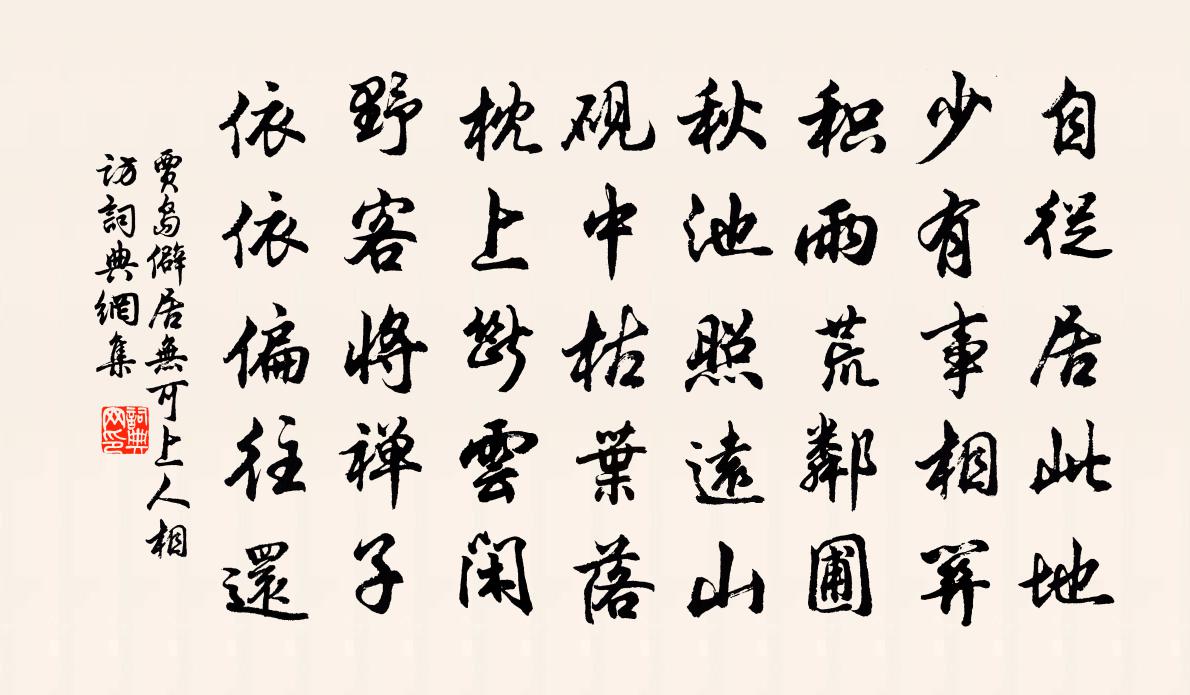 自從居此地
少有事相關
积雨荒鄰圃
秋池照遠山
硯中枯葉落
枕上斷雲閑
野客將禅子
依依偏往還
賈島僻居無可上人相
訪詞典網集
詞典网印